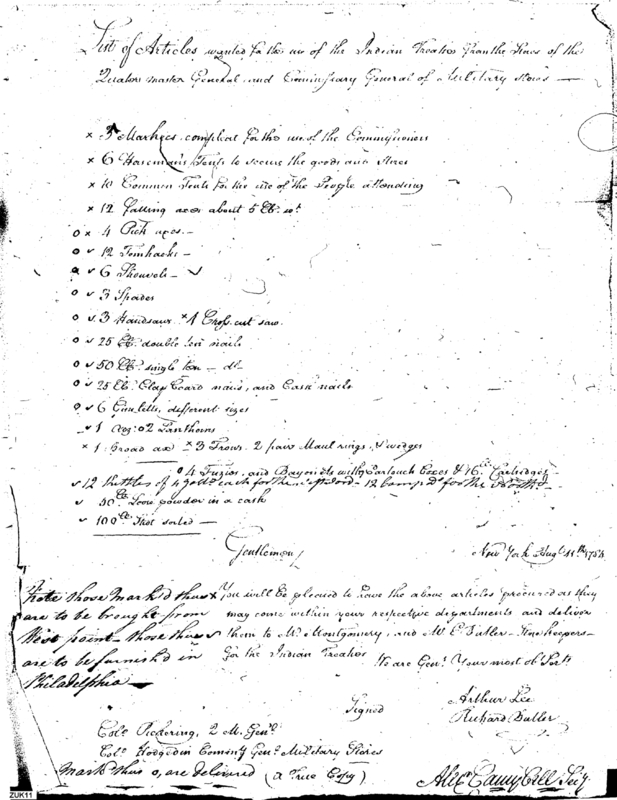 List of Articles wanted for the use of the Indian Treaties from the Stores of the
Quarter master General, and Commissary General of Military Stores —
x 3 Markees compleat for the use of the Commissioners
x 6 Horsemans Tents to secure the goods and Stores
x 10 Common Tents for the use of the People attending
x 12 falling axes about 5 lb. wt
o x 4 Pick axes —
o v 12 Tomhacks —
o v 6 Shouvels — v
o v 3 Spades
o v 3 Handsaws x 1 Cross cut saw
o v 25 lb. double ten nails
o v 50 lb. single ten — do
o v 25 lb. Clap board nails, and Cask nails
o v 6 Gimletts, different sizes
v 1 2 Lanthorns
x 1 Broad ax x 3 Frows. 2 pairs Maul rings, & wedges
o 4 Fuzees, and Bayonets with Cartouch Boxes & Cartridges
v 12 Kettles of 4 galls. each for the 12 for the
v 50 lb. Loose powder in a cask
v 100 lb. Shot sorted —
New York Augt. 11th. 1784
Gentlemen/
You will be pleased to have the above articles procured as they
may come within your respective departments and deliver
them to Mr. Montgomery, and Mr. E. Butler — Storekeepers —
for the Indian Treaties
We are Gent. Your most ob Servts
Note those Mark'd thus x
are to be brought from
West point — those thus v
are to be furnish'd in
Philadelphia —
Signed
Arthur Lee
Richard Butler
Colo. Pickering, Q M. Genl.
Colo. Hodgedon Commy Genl. Military Stores
Mark thus o, are delivered (a True Copy)
Alexr Campbell Secy
ZUK11